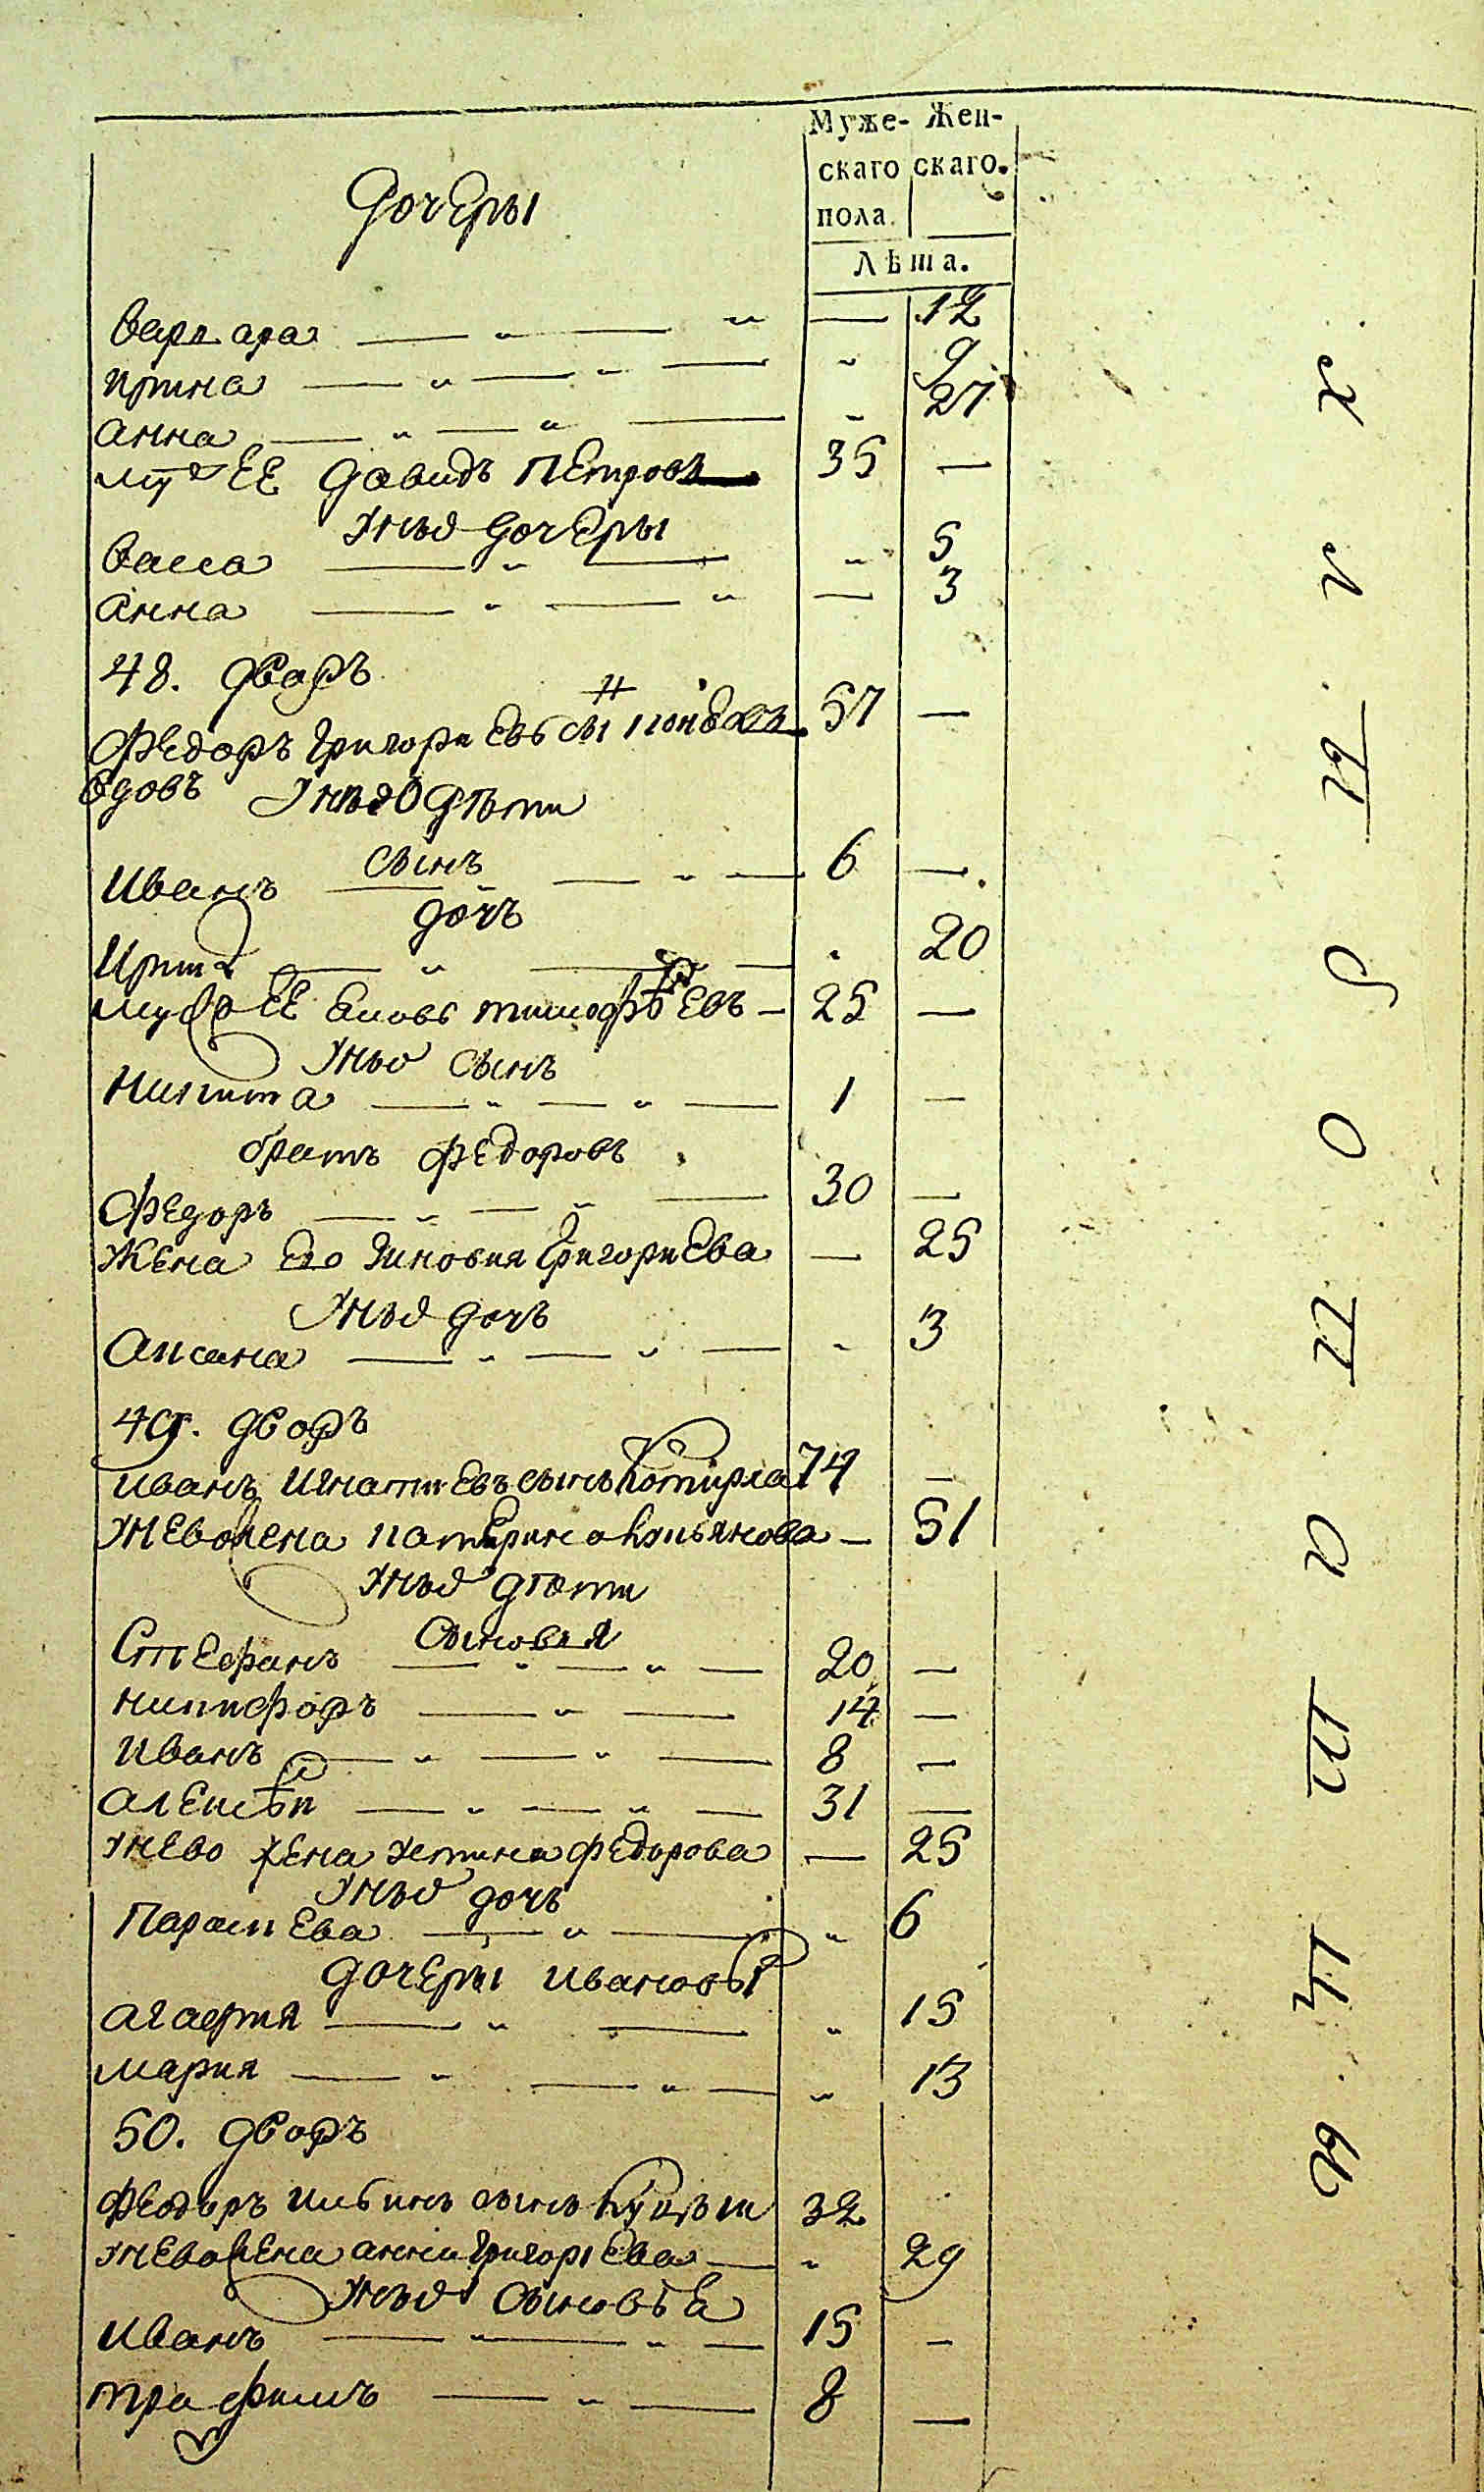 Муже- Жен-
скаго скаго.
пола.
Лѣта.
дочеры
варвара 12
ирина 9
анна 27
муж ЕЕ давидъ пЕтровъ 35 —
у нъхъ дочеры
васса 5
анна 3
48. дворъ
фЕдоръ григориЕвъ сынъ 57 —
вдовъ у нѣхъ дѣти
сынъ
иванъ 6 —
дочь
Ирина 20
мужъ ЕЕ тимофѣЕвъ 25 —
у нъхъ сынъ
никита 1 —
братъ фЕдоровъ
фЕдоръ 30 —
жЕна Его зиновия григориЕва — 25
у нъхъ дочь
аксана 3
49. дворъ
иванъ игнатиЕвъ сынъ 74 —
у нЕво жЕна катЕрина — 51
у нъхъ дѣти
сыновья
СтЕфанъ 20 —
никифоръ 14 —
иванъ 8 —
алЕксѣй 31 —
у нЕво жЕна устина фЕдорова — 25
у нъхъ дочь
параскЕва 6
дочЕры ивановы
агафия 15
мария 13
50. дворъ
фЕодоръ сынъ 32
у нЕво жЕна анна григориЕва 29
у нъхъ сыновья
иванъ 15 —
трафимъ 8 —